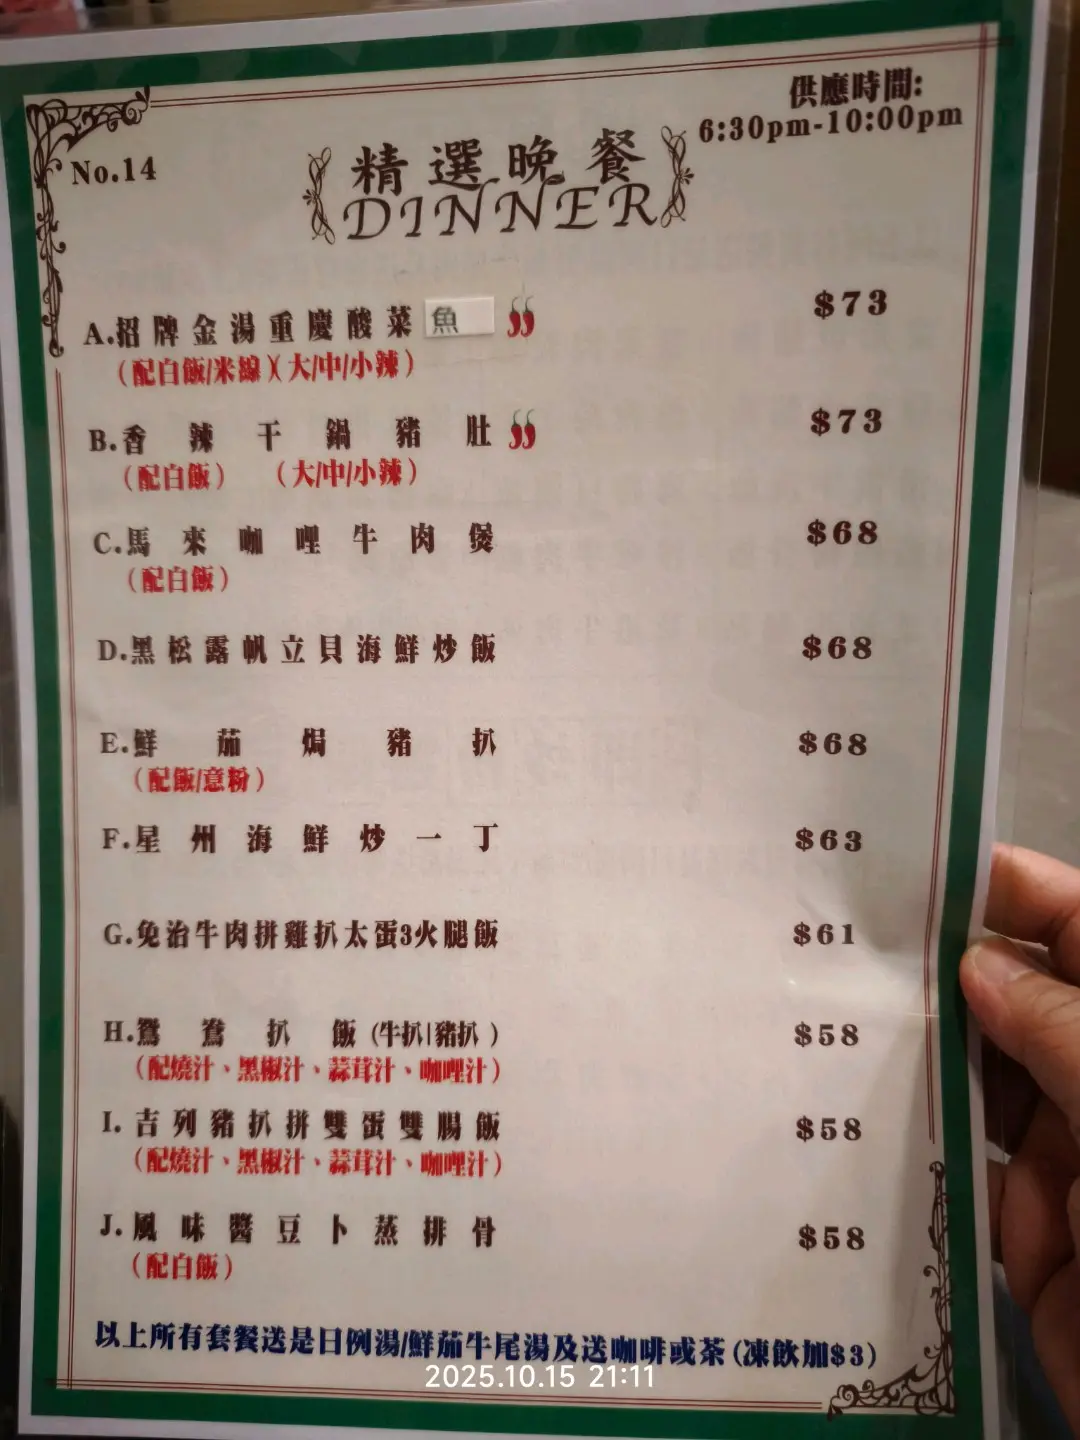 供應時間:
6:30pm-10:00pm
No.14
精選晚餐
DINNER
A.招牌金湯重慶酸菜魚 $73
(配白飯/米線)(大/中/小辣)
B.香辣干鍋豬肚 $73
(配白飯) (大/中/小辣)
C.馬來咖哩牛肉煲 $68
(配白飯)
D.黑松露帆立貝海鮮炒飯 $68
E.鮮茄焗豬扒 $68
(配飯/意粉)
F.星州海鮮炒一丁 $63
G.免治牛肉拼雞扒太蛋3火腿飯 $61
H.鴛鴦扒飯(牛扒|豬扒) $58
(配燒汁、黑椒汁、蒜茸汁、咖哩汁)
I.吉列豬扒拼雙蛋雙腸飯 $58
(配燒汁、黑椒汁、蒜茸汁、咖哩汁)
J.風味醬豆卜蒸排骨 $58
(配白飯)
以上所有套餐送是日例湯/鮮茄牛尾湯及送咖啡或茶(凍飲加$3)
2025.10.15 21:11